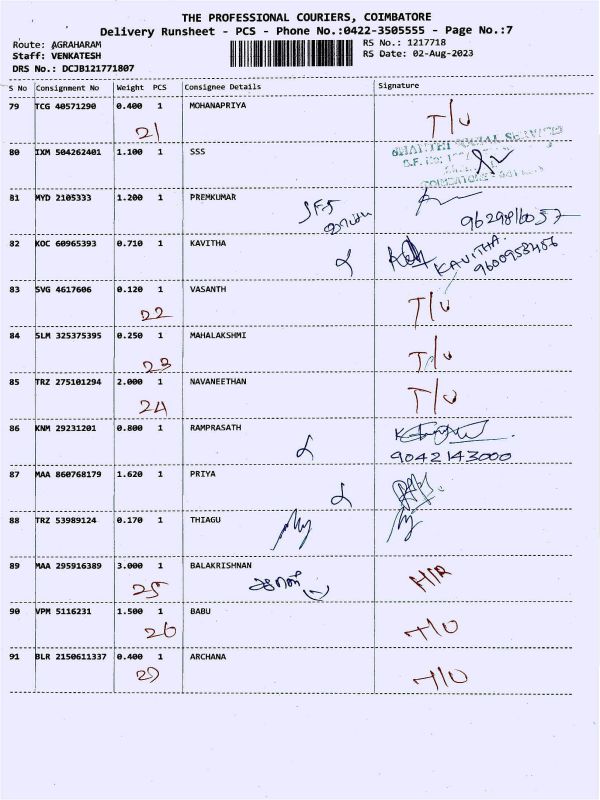 THE PROFESSIONAL COURIERS, COIMBATORE
Delivery Runsheet - PCS - Phone No.:0422-3505555 - Page No.:7
Route: AGRAHARAM
RS No.: 1217718
Staff: VENKATESH
RS Date: 02-Aug-2023
DRS No.: DCJB121771807
S No Consignment No Weight PCS Consignee Details Signature
79 TCG 40571290 0.400 1 MOHANAPRIYA
21 T/U
80 IXM 504262401 1.100 1 SSS
81 MYD 2105333 1.200 1 PREMKUMAR
9629816057
82 KOC 60965393 0.710 1 KAVITHA
KAVITHA.
9600953456
83 SVG 4617606 0.120 1 VASANTH
22 T/U
84 SLM 325375395 0.250 1 MAHALAKSHMI
23 T/U
85 TRZ 275101294 2.000 1 NAVANEETHAN
24 T/U
86 KNM 29231201 0.800 1 RAMPRASATH
9042143000
87 MAA 860768179 1.620 1 PRIYA
88 TRZ 53989124 0.170 1 THIAGU
89 MAA 295916389 3.000 1 BALAKRISHNAN
25 H/R
90 VPM 5116231 1.500 1 BABU
26 T/U
91 BLR 2150611337 0.400 1 ARCHANA
T/U